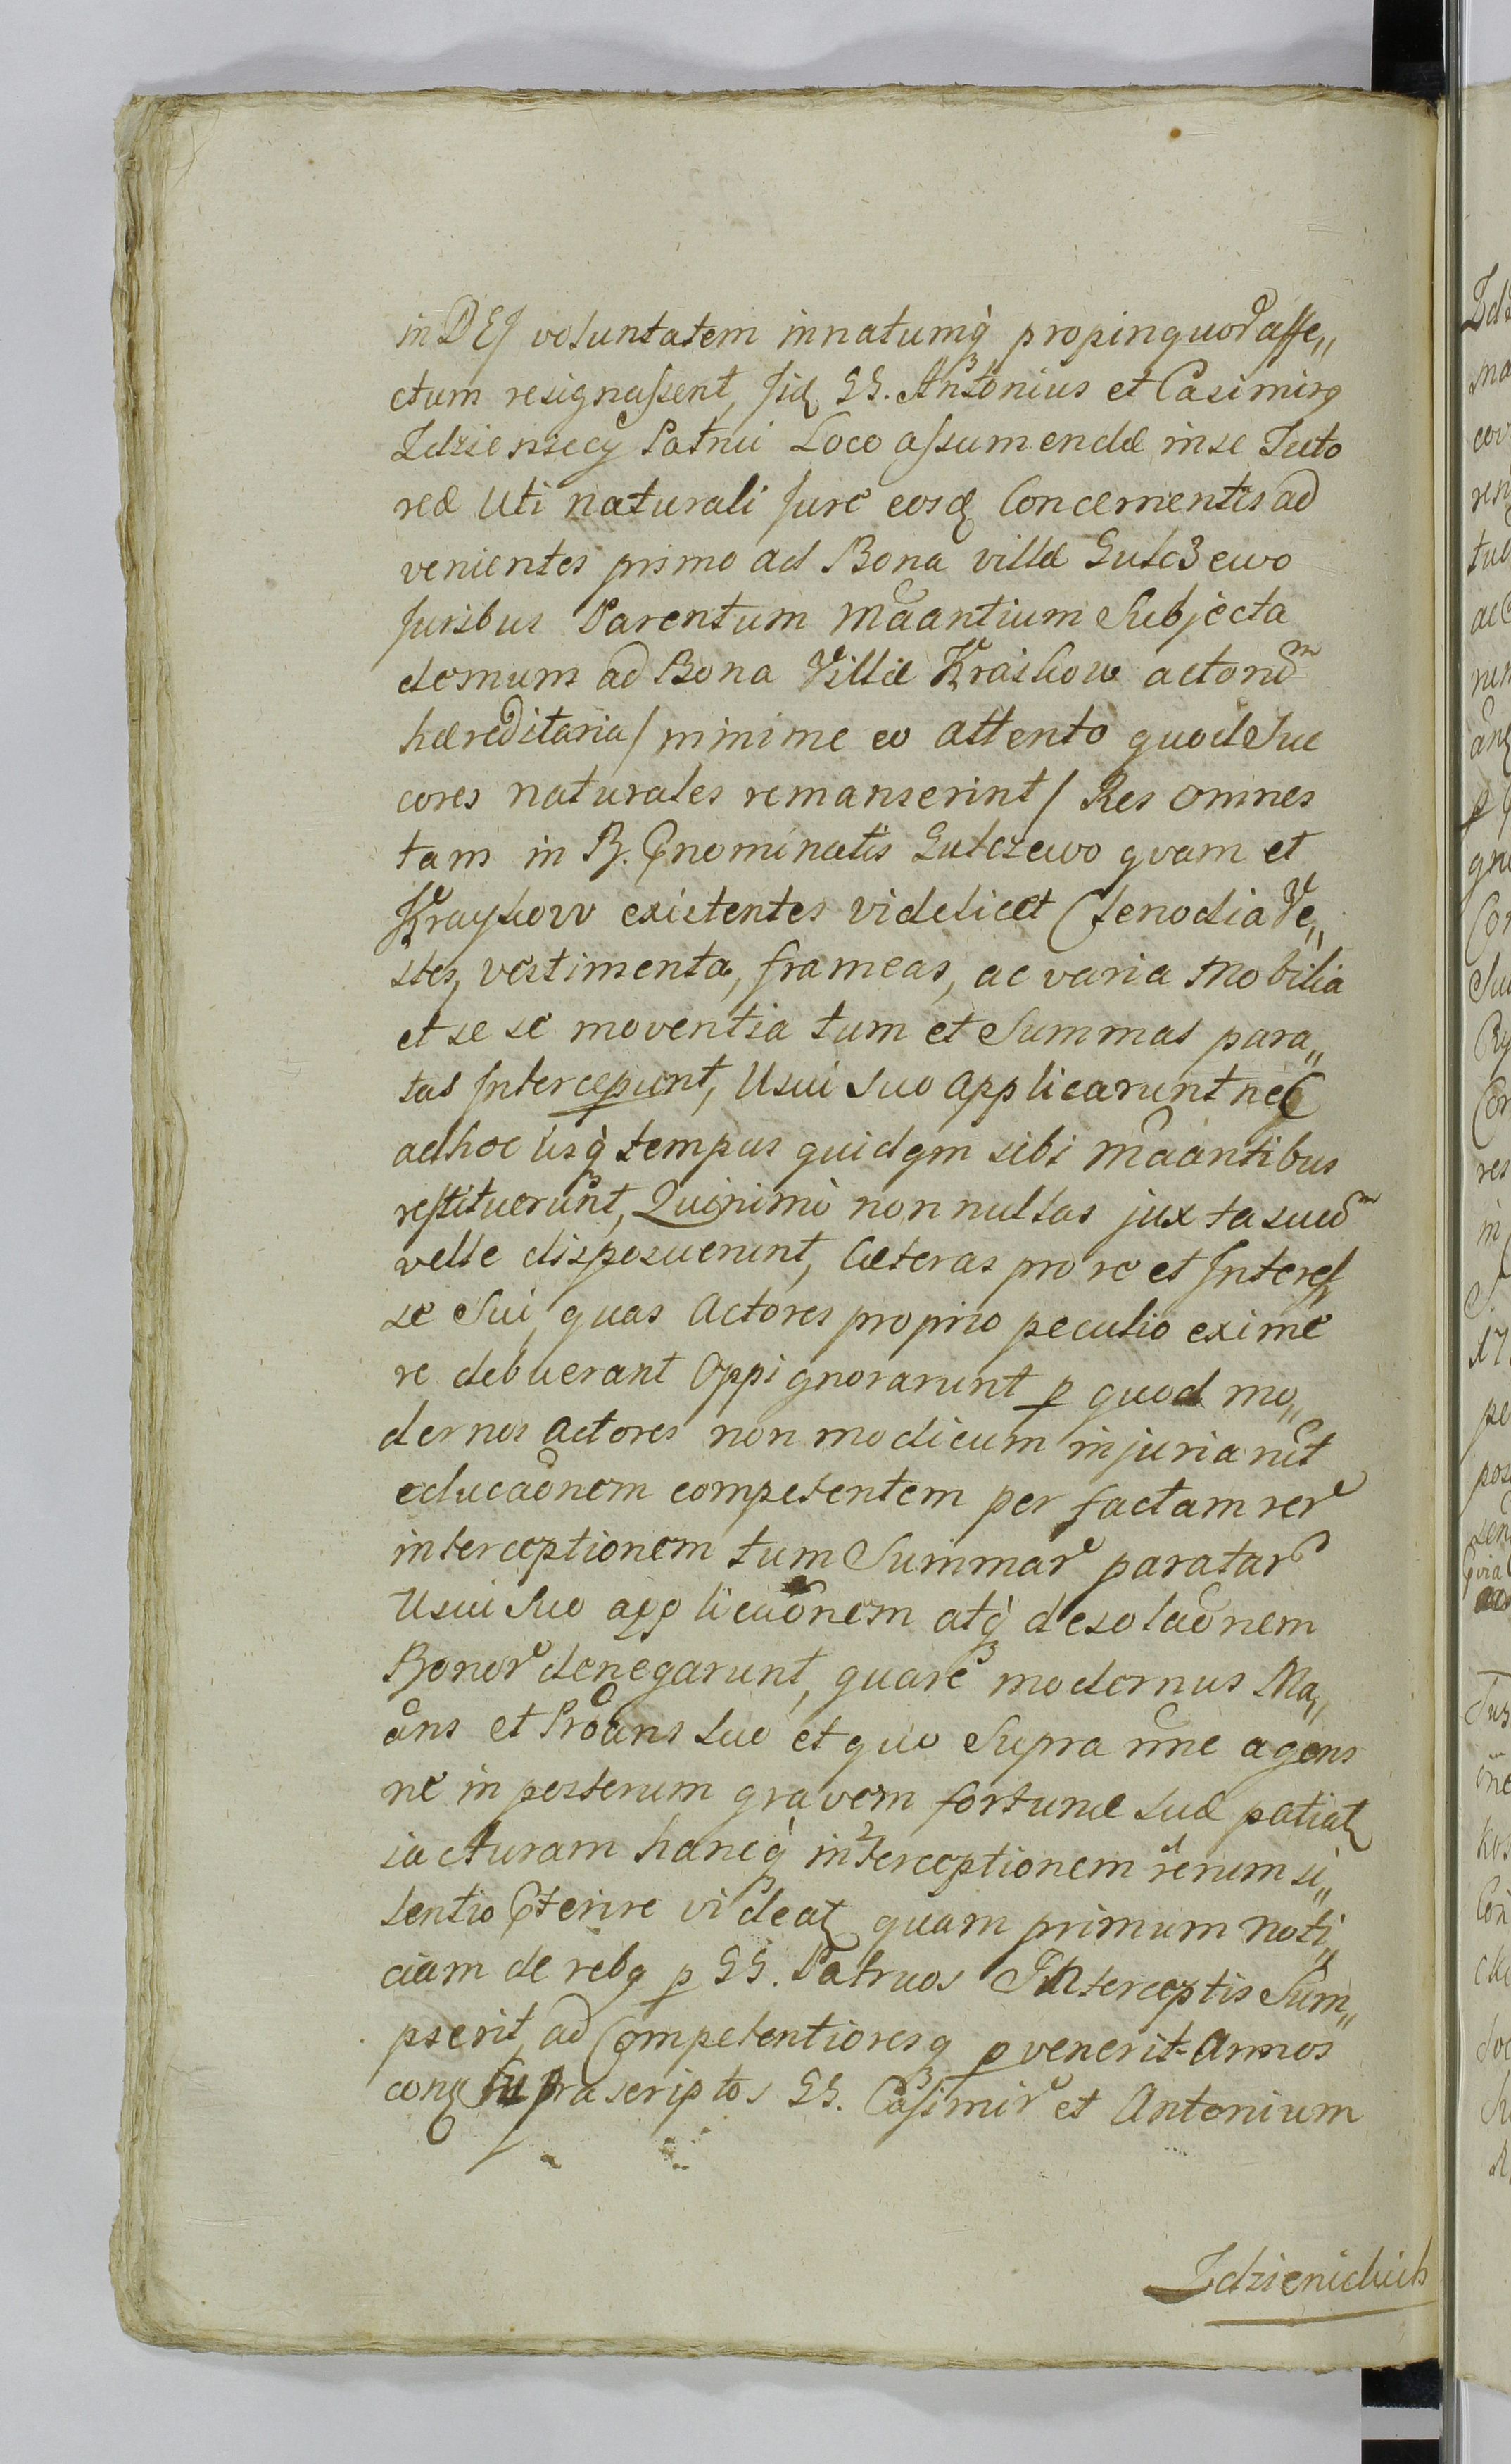 in DEJ voluntatem innatumq̀ꝫ propinquor affe„
ctum resignassent, Jid GG. Antonius et Casimirꝰ
Zdzienssecy Patrui Loco assumendæ in se Tuto
reæ Uti naturali Jure eosd Concernentis ad
venientes primo ad Bona villæ Gulczewo
Juribus Parentum Mãantium Subjecta
demum ad Bona Villæ Kraskow actorũm
hæreditaria / minime eo attento quod Suc
cores naturales remanserint / Res omnes
tam in B. Pnominatis Gulczewo quam et
Krayskow existentes videlicet Clenodia Ve„
stes, vestimenta, frameas, ac varia Mobilia
et se se moventia tum et Summas para„
tas Intercepunt, Usui Suo applicarunt nec
adhoc usq̀ꝫ tempus quidqm sibi Mãantibus
restituerunt, Quinimò non nullas juxta suũm
velle disposuerunt, Cæteras pro re et Interes
se Sui, quas Actores proprio peculio exime
re debuerant Oppignorarunt ꝑ quod mo„
dernos actores non modicum injuriarũt
educaõnem competentem per factam rer
interceptionem tum Summar paratar
Usui Suo applicaõnem atq̀ꝫ desolaõnem
Bonor denegarunt, quare modernus Ma„
ãns et Proãns suo et quo Supra nne agens
ne in posterum gravem fortunæ suæ patiat
iacturam hancq̀ꝫ interceptionem rerum si„
lentio Pterire videat quam primum noti„
ciam de rebꝰ ꝑ GG. Patruos Interceptis Sum„
pserit, ad Competentioresqꝫ ꝑvenerit Annos
cong Suprascriptos GG. Casimir et Antonium
Zdzienickich